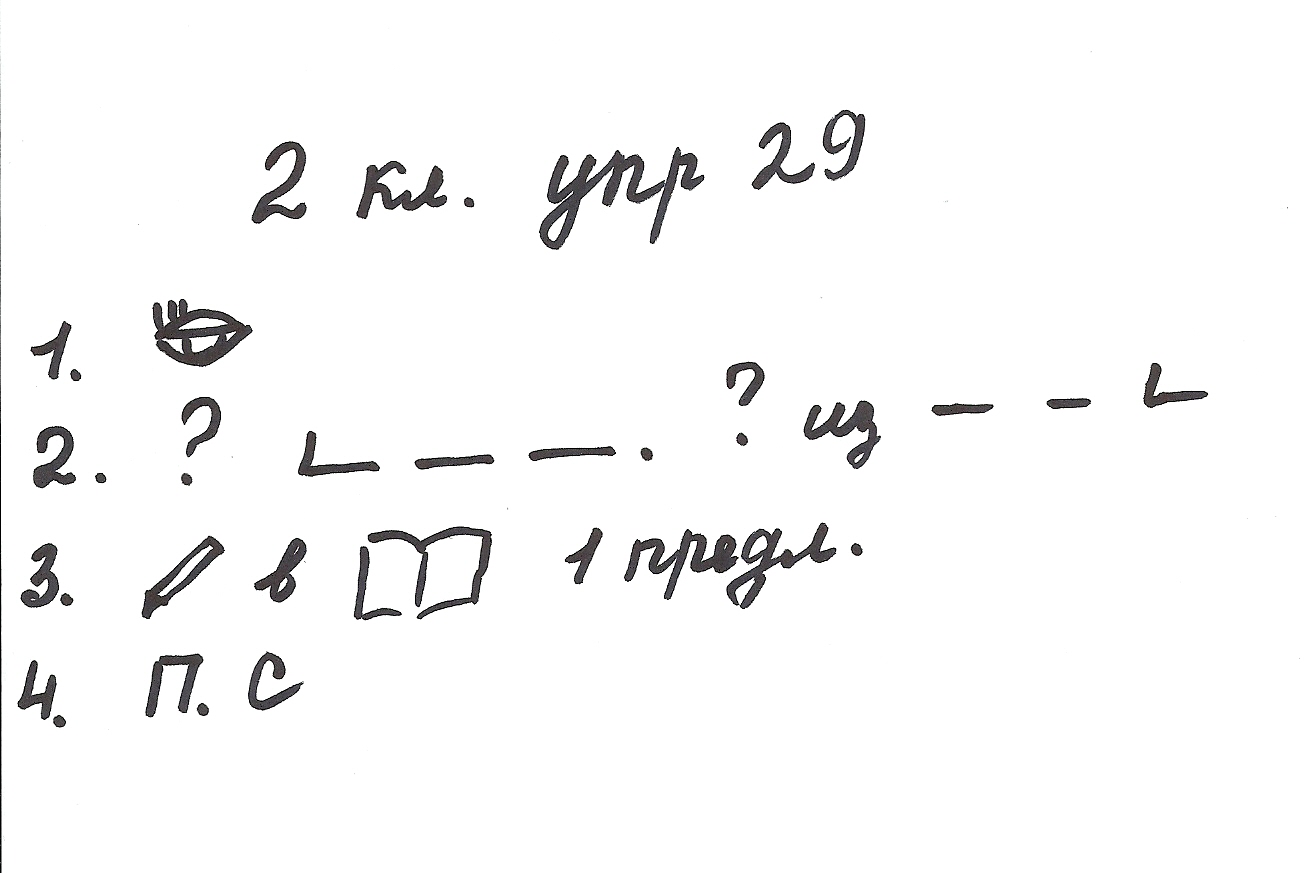 2 кл. упр 29
1.
2. ? . ? из
3. в 1 предл.
4. П. С